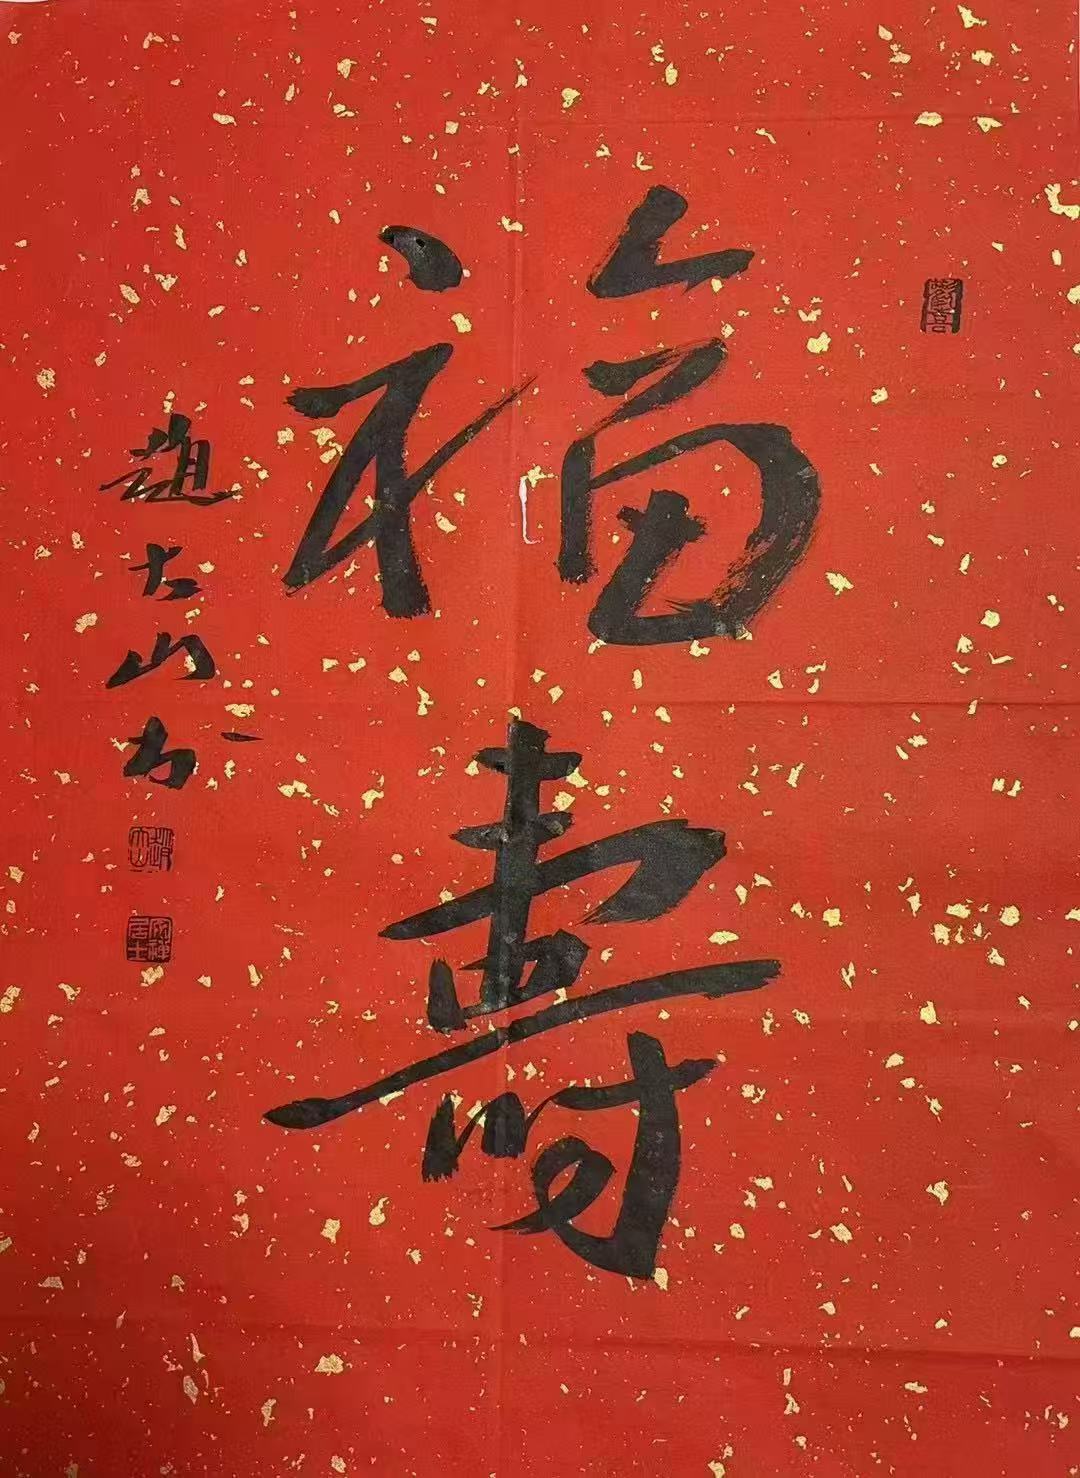 福壽
趙大山书